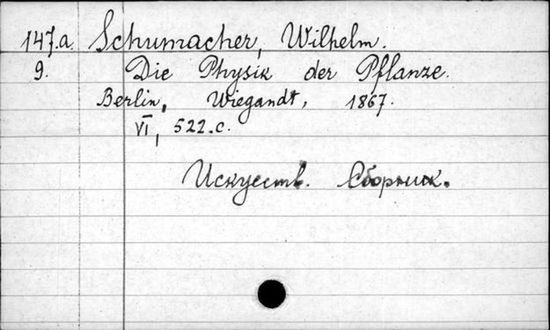 147.a. Schumacher, Wilhelm.
9. Die Physik der Pflanze.
Berlin, Wiegandt, 1867.
VI, 522.c.
Искусств. Сборник.